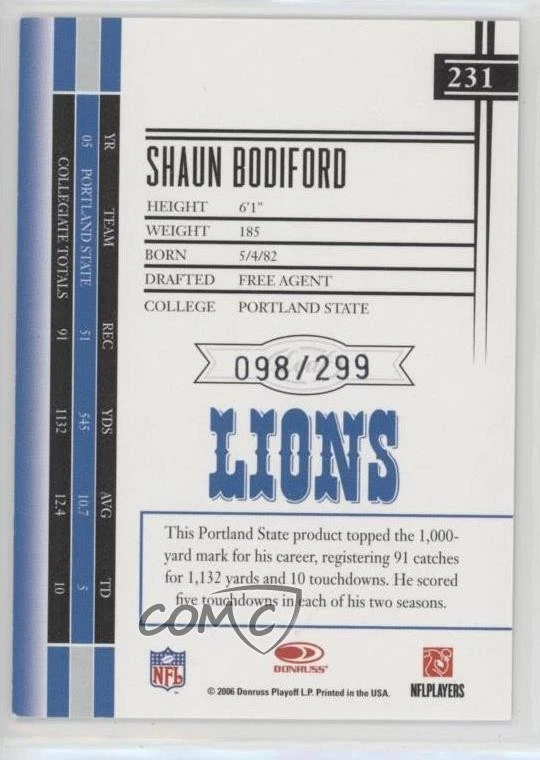 231
SHAUN BODIFORD
HEIGHT 6'1"
WEIGHT 185
BORN 5/4/82
DRAFTED FREE AGENT
COLLEGE PORTLAND STATE
098/299
LIONS
This Portland State product topped the 1,000-
yard mark for his career, registering 91 catches
for 1,132 yards and 10 touchdowns. He scored
five touchdowns in each of his two seasons.
COMC
NFL
DONRUSS
NFLPLAYERS
© 2006 Donruss Playoff L.P. Printed in the USA.
YR TEAM REC YDS AVG TD
05 PORTLAND STATE 51 545 10.7 5
COLLEGIATE TOTALS 91 1132 12.4 10